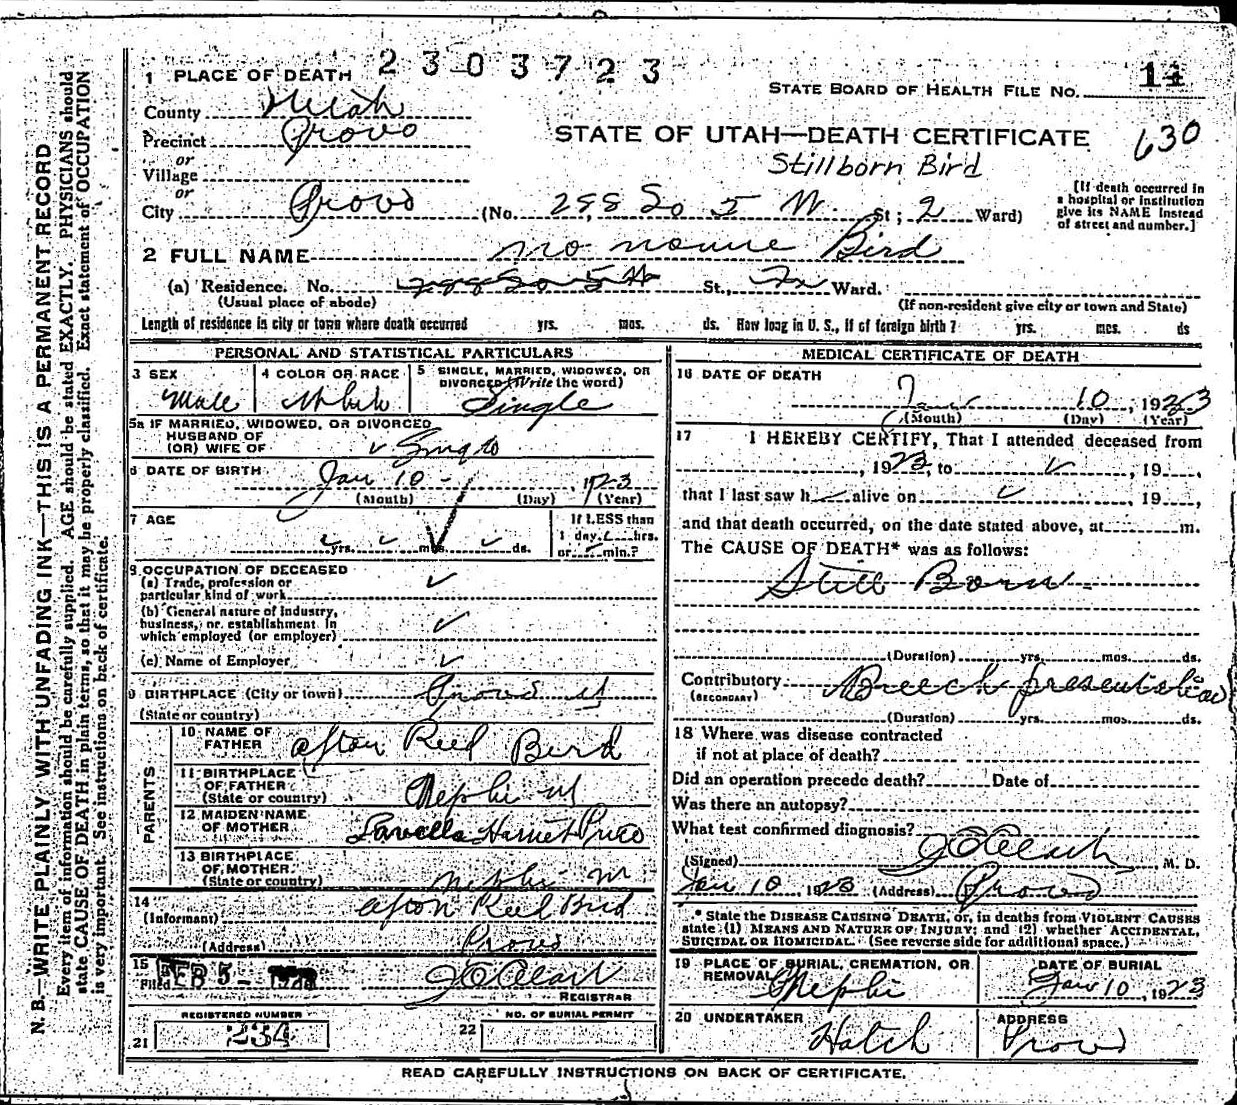 2303723
1 PLACE OF DEATH
STATE BOARD OF HEALTH FILE No. 14
County Utah
Precinct Provo
STATE OF UTAH—DEATH CERTIFICATE 630
or
Village
Stillborn Bird
or
City Provo (No. 298 So 5 W. St; 2 Ward)
[If death occurred in
a hospital or institution
give its NAME instead
of street and number.]
2 FULL NAME no name Bird
(a) Residence. No. 298 So 5 W St., Ward.
(Usual place of abode)
(If non-resident give city or town and State)
Length of residence in city or town where death occurred yrs. mos. ds. How long in U. S., if of foreign birth? yrs. mos. ds
PERSONAL AND STATISTICAL PARTICULARS
3 SEX
Male
4 COLOR OR RACE
White
5 SINGLE, MARRIED, WIDOWED, OR
DIVORCED (Write the word)
Single
5a IF MARRIED, WIDOWED, OR DIVORCED
HUSBAND OF
(OR) WIFE OF
6 DATE OF BIRTH
Jan 10 - , 1923
(Month) (Day) (Year)
7 AGE
yrs. mos. ds.
If LESS than
1 day, hrs.
or min.?
8 OCCUPATION OF DECEASED
(a) Trade, profession or
particular kind of work
(b) General nature of industry,
business, or establishment in
which employed (or employer)
(c) Name of Employer
9 BIRTHPLACE (City or town) Provo Ut
(State or country)
PARENTS
10 NAME OF
FATHER
Afton Reed Bird
11 BIRTHPLACE
OF FATHER
(State or country)
Nephi Ut
12 MAIDEN NAME
OF MOTHER
Lavella Harriet Price
13 BIRTHPLACE
OF MOTHER
(State or country)
Nephi Ut
14
(Informant) Afton Reed Bird
(Address) Provo
15
Filed FEB 5 - 1923
REGISTRAR
REGISTERED NUMBER
21 234
NO. OF BURIAL PERMIT
22
MEDICAL CERTIFICATE OF DEATH
16 DATE OF DEATH
Jan 10, 1923
(Month) (Day) (Year)
17 I HEREBY CERTIFY, That I attended deceased from
, 1923, to , 19
that I last saw h alive on , 19
and that death occurred, on the date stated above, at m.
The CAUSE OF DEATH* was as follows:
Still Born
(Duration) yrs. mos. ds.
Contributory Breech presentation
(SECONDARY)
(Duration) yrs. mos. ds.
18 Where was disease contracted
if not at place of death?
Did an operation precede death? Date of
Was there an autopsy?
What test confirmed diagnosis?
(Signed) M. D.
Jan 10, 1923 (Address) Provo
* State the DISEASE CAUSING DEATH, or, in deaths from VIOLENT CAUSES
state (1) MEANS AND NATURE OF INJURY; and (2) whether ACCIDENTAL,
SUICIDAL OR HOMICIDAL. (See reverse side for additional space.)
19 PLACE OF BURIAL, CREMATION, OR
REMOVAL
Nephi
DATE OF BURIAL
Jan 10, 1923
20 UNDERTAKER
Hatch
ADDRESS
Provo
READ CAREFULLY INSTRUCTIONS ON BACK OF CERTIFICATE.
N. B.—WRITE PLAINLY WITH UNFADING INK—THIS IS A PERMANENT RECORD
Every item of information should be carefully supplied. AGE should be stated EXACTLY. PHYSICIANS should
state CAUSE OF DEATH in plain terms, so that it may be properly classified. Exact statement of OCCUPATION
is very important. See instructions on back of certificate.